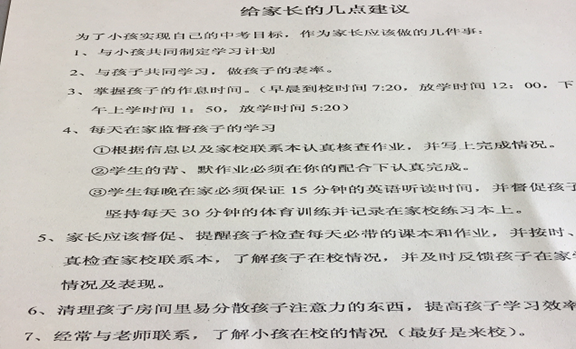 给家长的几点建议
为了小孩实现自己的中考目标，作为家长应该做的几件事：
1、与小孩共同制定学习计划
2、与孩子共同学习，做孩子的表率。
3、掌握孩子的作息时间。（早晨到校时间 7:20，放学时间 12：00，下
午上学时间 1：50，放学时间 5:20）
4、每天在家监督孩子的学习
①根据信息以及家校联系本认真核查作业，并写上完成情况。
②学生的背、默作业必须在你的配合下认真完成。
③学生每晚在家必须保证 15 分钟的英语听读时间，并督促孩子
坚持每天 30 分钟的体育训练并记录在家校练习本上。
5、家长应该督促、提醒孩子检查每天必带的课本和作业，并按时、
真检查家校联系本，了解孩子在校情况，并及时反馈孩子在家
情况及表现。
6、清理孩子房间里易分散孩子注意力的东西，提高孩子学习效率
7、经常与老师联系，了解小孩在校的情况（最好是来校）。